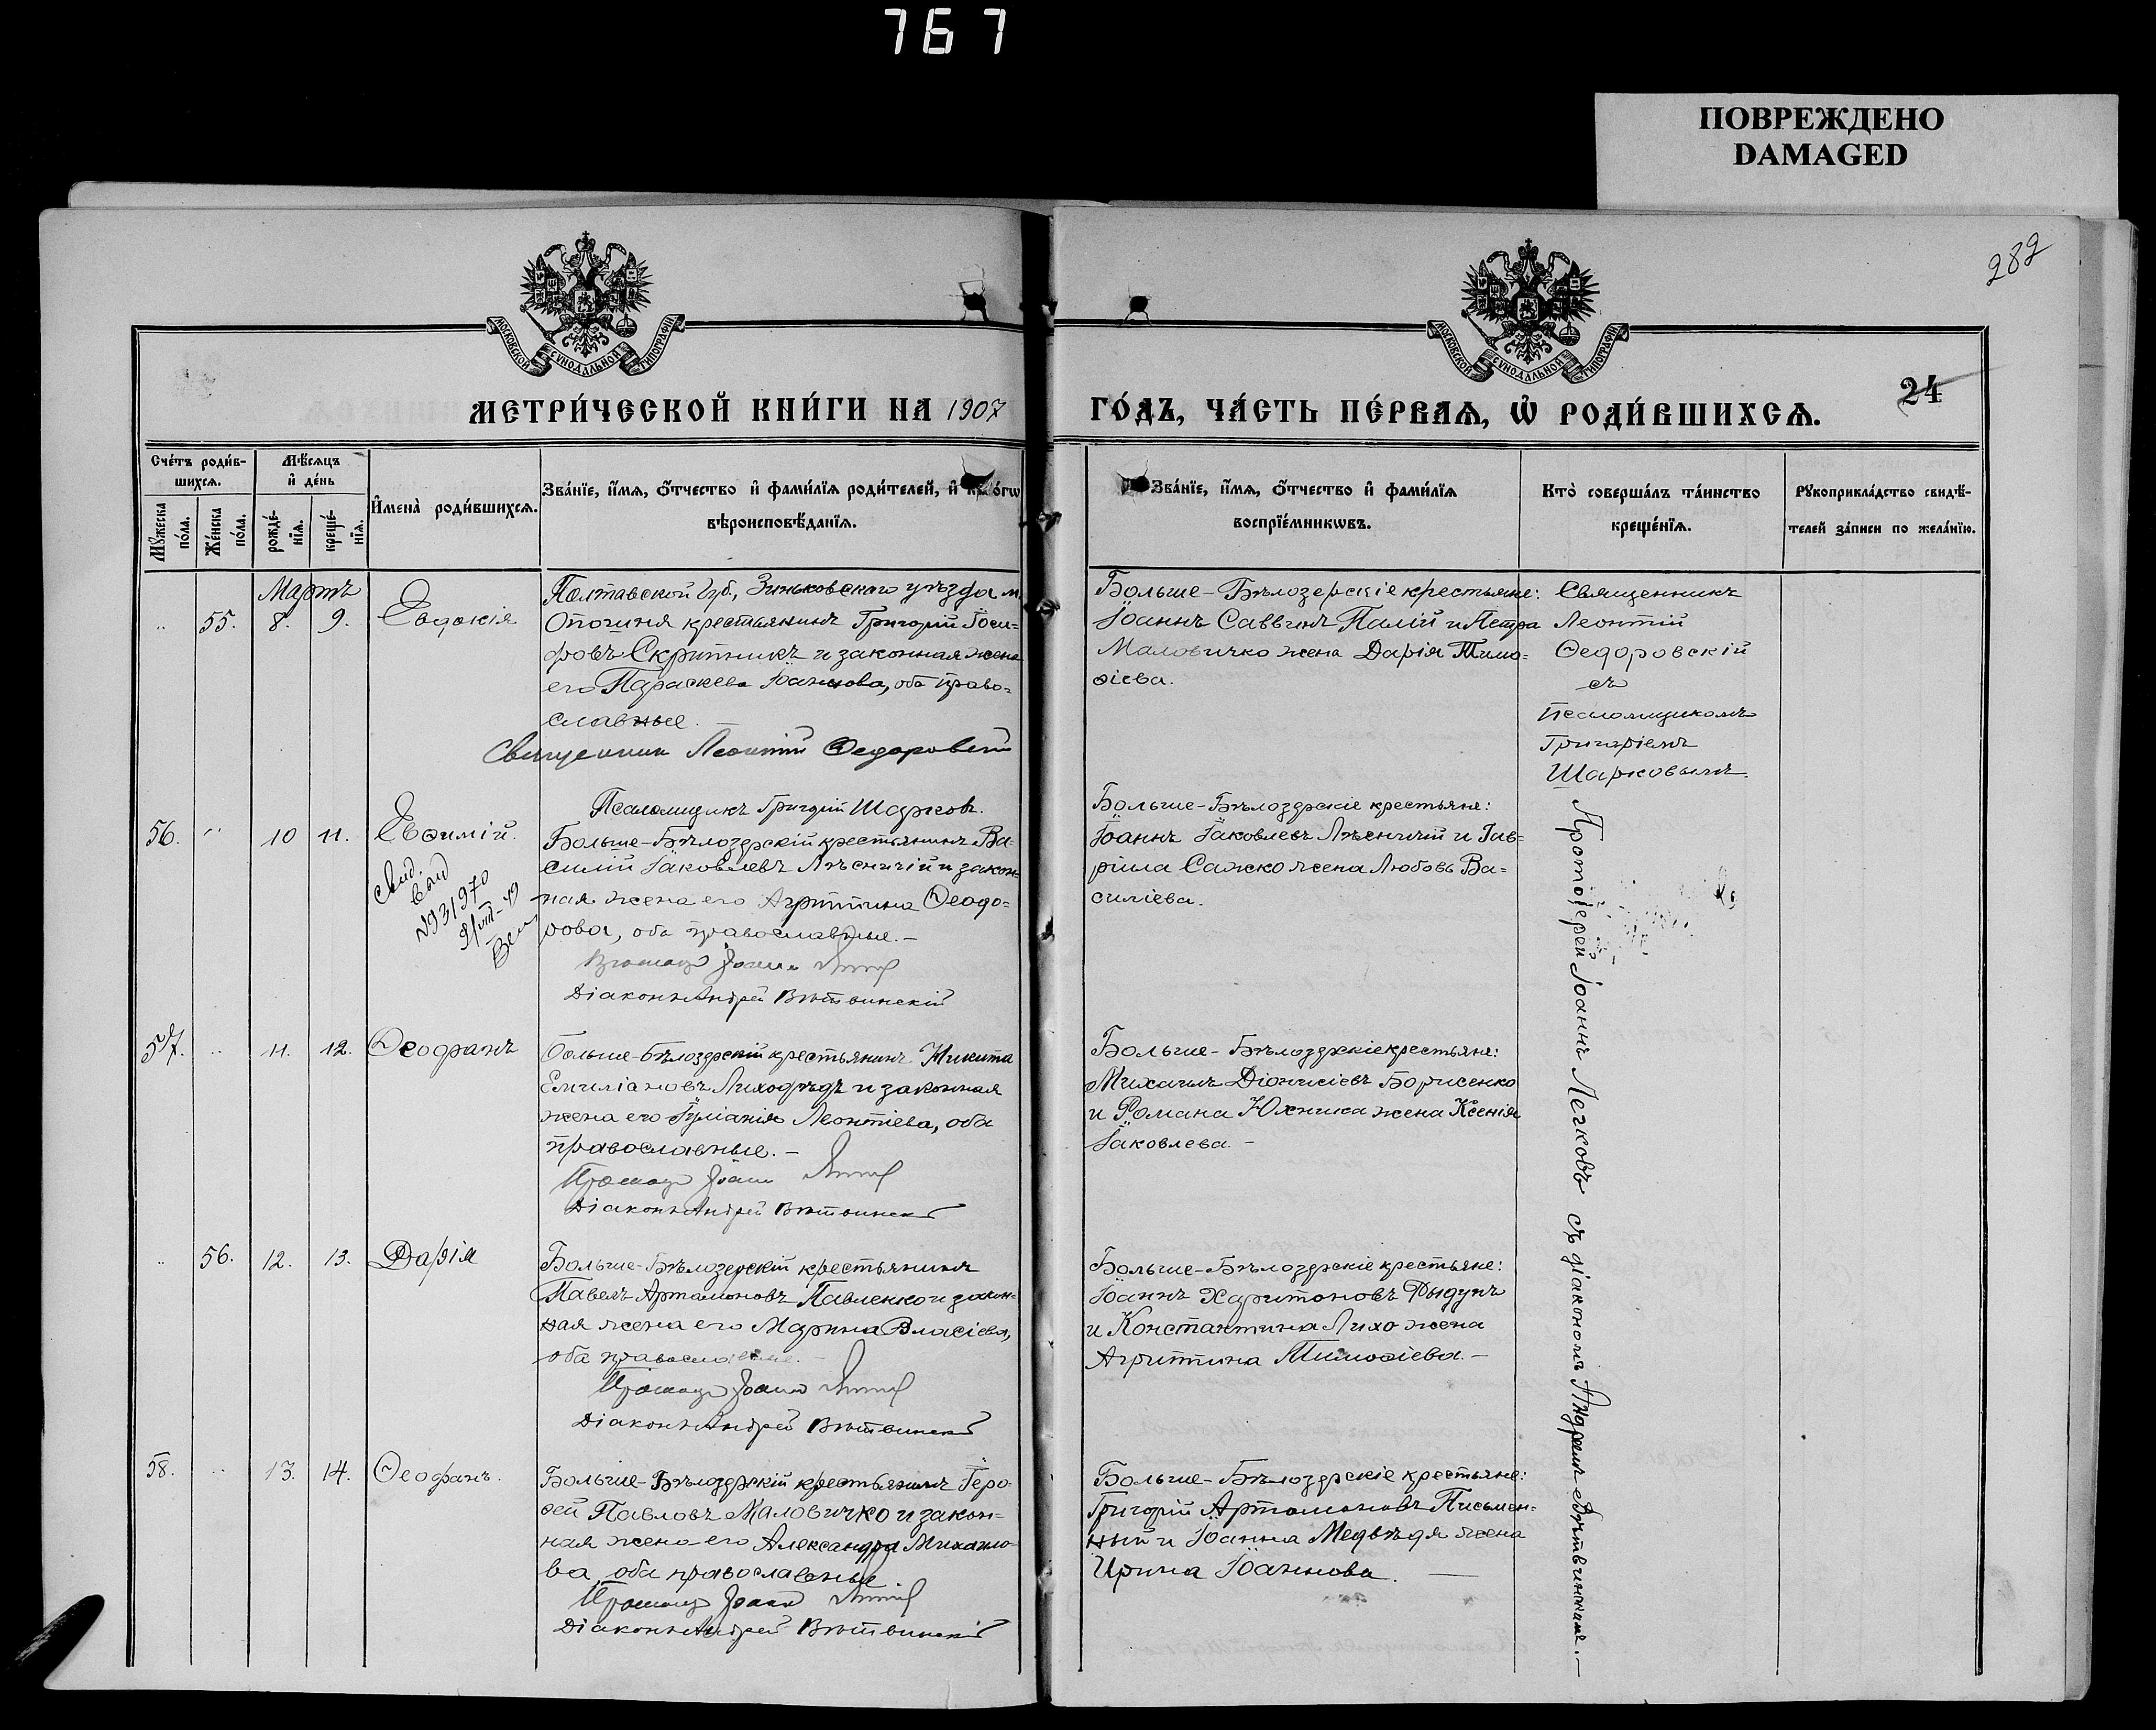 767
ПОВРЕЖДЕНО
DAMAGED
282
МОСКОВСКОЙ СѴНОДАЛЬНОЙ ТИПОГРАФІИ
МОСКОВСКОЙ СѴНОДАЛЬНОЙ ТИПОГРАФІИ
24
МЕТРИ́ЧЕСКОЙ КНИ́ГИ НА 1907
ГО́ДЪ, ЧА́СТЬ ПЕ́РВАЯ, Ѡ҆ РОДИ́ВШИХСЯ.
Сче́тъ роди́в-
шихся.
Мѣ́сяцъ
и҆ де́нь
Мꙋ́жеска
по́ла.
Же́нска
по́ла.
рожде́-
нїя.
креще́-
нїя.
И҆мена̀ роди́вшихся.
Зва́нїе, и҆́мя, ѻ҆́тчество и҆ фами́лїя роди́телей, и҆
вѣроисповѣ́данїя.
Зва́нїе, и҆́мя, ѻ҆́тчество и҆ фами́лїя
воспрїе́мникѡвъ.
Кто̀ соверша́лъ та́инство
креще́нїя.
Рꙋкоприкла́дство свидѣ́-
телей за́писи по жела́нїю.
Мартъ
55. 8. 9. Евдокія
Полтавской губ., Зиньковскаго уѣзда м.
Опошня крестьянинъ Григорій Іоси-
фовъ Скрипникъ и законная жена
его Параскева Іоаннова, оба право-
славные.
Священник Леонтій Ѳедоровскій
Псаломщикъ Григорій Шарков.
Больше-Бѣлозерскіе крестьяне:
Іоаннъ Саввинъ Палій и Петра
Маловичко жена Дарія Тимо-
ѳіева.
Священникъ
Леонтій
Ѳедоровскій
съ
Псаломщикомъ
Григоріемъ
Шарковымъ.
56. 10 11. Евѳимій.
Больше-Бѣлозерскій крестьянинъ Ва-
силій Іаковлевъ Лѣсничій и закон-
ная жена его Агриппина Ѳеодо-
рова, оба православные.-
Іоанн
Діаконъ Андрей Вѣтвинскій
Больше-Бѣлозерскіе крестьяне:
Іоаннъ Іаковлевъ Лѣсничій и Гав-
ріила Сажко жена Любовь Ва-
силіева.
Протоіерей Іоаннъ Легковъ съ діакономъ Андреемъ Вѣтвинскимъ.-
57. 11. 12. Ѳеофанъ
Больше-Бѣлозерскій крестьянинъ Никита
Емиліановъ Лиходѣдъ и законная
жена его Іуліанія Леонтіева, оба
православные.-
Іоанн
Діаконъ Андрей Вѣтвинскій
Больше-Бѣлозерскіе крестьяне:
Михаилъ Діонисіевъ Борисенко
и Романа Юхника жена Ксенія
Іаковлева.-
56. 12. 13. Дарія
Больше-Бѣлозерскій крестьянинъ
Павелъ Артамоновъ Павленко и закон-
ная жена его Марина Власіева,
оба православные.-
Іоанн
Діаконъ Андрей Вѣтвинскій
Больше-Бѣлозерскіе крестьяне:
Іоаннъ Харитоновъ Дыдунъ
и Константина Лихо жена
Агриппина Тимоѳіева.-
58. 13. 14. Ѳеофанъ.
Больше-Бѣлозерскій крестьянинъ Іеро-
ѳей Павловъ Маловичко и закон-
ная жена его Александра Михаило-
ва, оба православные
Іоанн
Діаконъ Андрей Вѣтвинскій
Больше-Бѣлозерскіе крестьяне:
Григорій Артамоновъ Письмен-
ный и Іоанна Медвѣдя жена
Ирина Іоаннова.